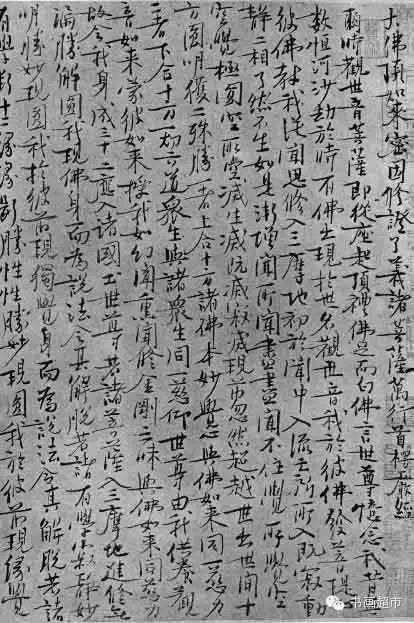 大佛頂如來密因修證了義諸菩薩萬行首楞嚴經
爾時觀世音菩薩即從座起頂禮佛足而白佛言世尊憶念我昔無
數恒河沙劫於時有佛出現於世名觀世音我於彼佛發菩提心
彼佛教我從聞思修入三摩地初於聞中入流亡所所入既寂動
靜二相了然不生如是漸增聞所聞盡盡聞不住覺所覺空
空覺極圓空所空滅生滅既滅寂滅現前忽然超越世出世間十
方圓明獲二殊勝一者上合十方諸佛本妙覺心與佛如來同一慈力
二者下合十方一切六道衆生與諸衆生同一悲仰世尊由我供養觀
音如來蒙彼如來授我如幻聞熏聞修金剛三昧與佛如來同慈力
故令我身成三十二應入諸國土世尊若諸菩薩入三摩地進修無
漏勝解圓我現佛身而為說法令其解脫若諸有學寂靜妙
明勝妙現圓我於彼前現獨覺身而為說法令其解脫若諸
有學斷十二緣緣斷勝性性勝妙現圓我於彼前現緣覺
书画超市